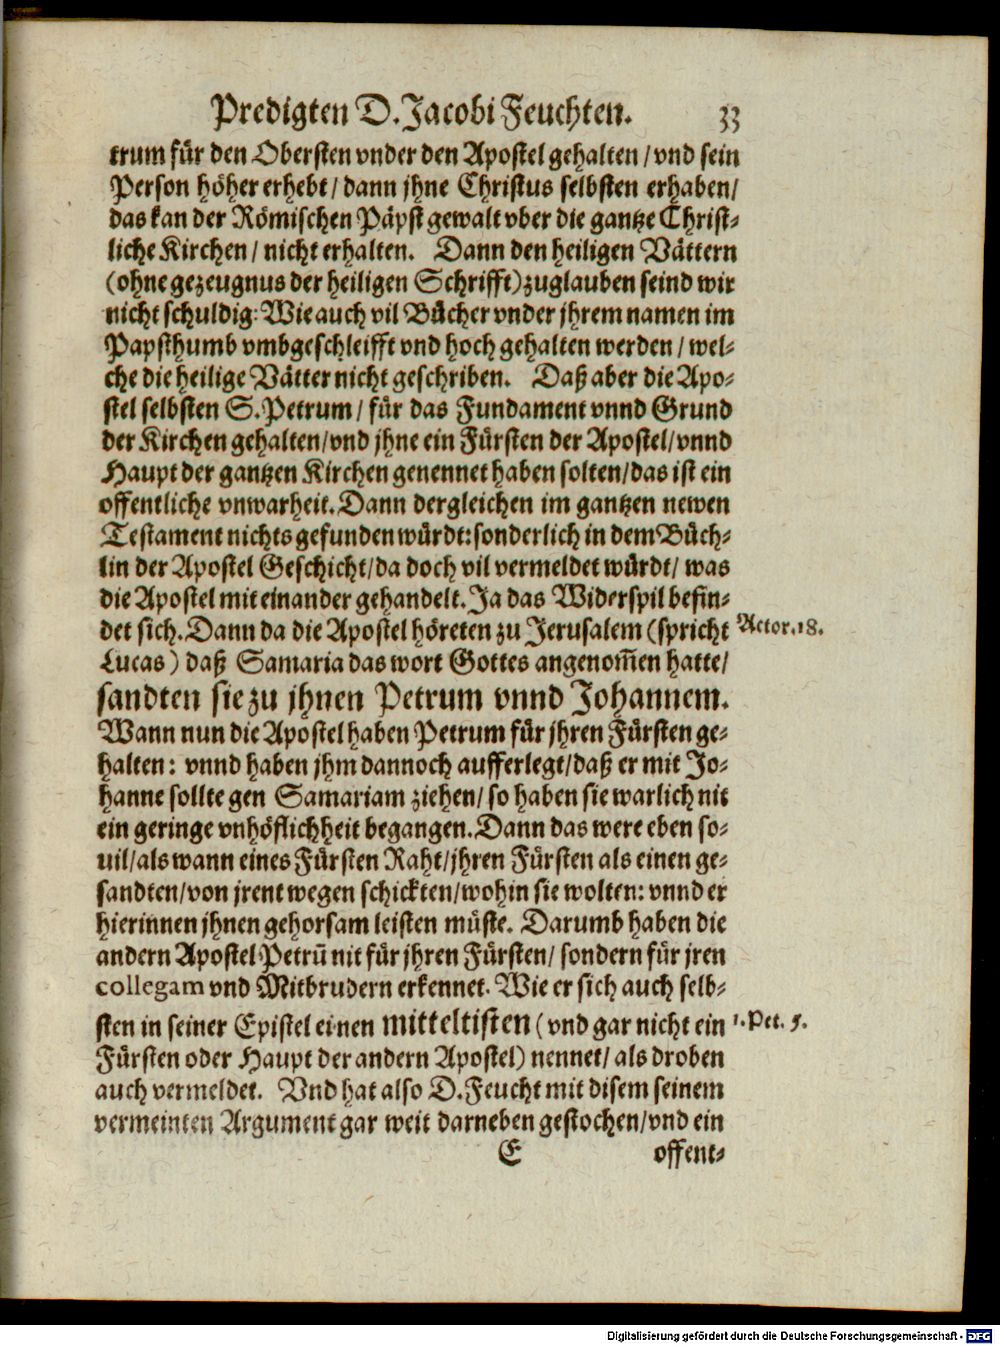 Predigten D. Jacobi Feuchten. 33
trum für den Obersten vnder den Apostel gehalten / vnd sein
Person höher erhebt / dann jhne Christus selbsten erhaben /
das kan der Römischen Päpst gewalt vber die gantze Christ-
liche Kirchen / nicht erhalten. Dann den heiligen Vättern
(ohne gezeugnus der heiligen Schrifft) zuglauben seind wir
nicht schuldig: Wie auch vil Bücher vnder jhrem namen im
Papsthumb vmbgeschleifft vnd hoch gehalten werden / wel-
che die heilige Vätter nicht geschriben. Daß aber die Apo-
stel selbsten S. Petrum / für das Fundament vnnd Grund
der Kirchen gehalten / vnd jhne ein Fürsten der Apostel / vnnd
Haupt der gantzen Kirchen genennet haben solten / das ist ein
offentliche vnwarheit. Dann dergleichen im gantzen newen
Testament nichts gefunden würdt: sonderlich in dem Büch-
lin der Apostel Geschicht / da doch vil vermeldet würdt / was
die Apostel mit einander gehandelt. Ja das Widerspil befin-
det sich. Dann da die Apostel höreten zu Jerusalem (spricht
Actor. 18.
Lucas) daß Samaria das wort Gottes angenom̄en hatte /
sandten sie zu jhnen Petrum vnnd Johannem.
Wann nun die Apostel haben Petrum für jhren Fürsten ge-
halten: vnnd haben jhm dannoch aufferlegt / daß er mit Jo-
hanne sollte gen Samariam ziehen / so haben sie warlich nit
ein geringe vnhöflichheit begangen. Dann das were eben so-
uil / als wann eines Fürsten Raht / jhren Fürsten als einen ge-
sandten / von jrent wegen schickten / wohin sie wolten: vnnd er
hierinnen jhnen gehorsam leisten müste. Darumb haben die
andern Apostel Petrū nit für jhren Fürsten / sondern für jren
collegam vnd Mitbrudern erkennet. Wie er sich auch selb-
sten in seiner Epistel einen mitteltisten (vnd gar nicht ein
1. Pet. 5.
Fürsten oder Haupt der andern Apostel) nennet / als droben
auch vermeldet. Vnd hat also D. Feucht mit disem seinem
vermeinten Argument gar weit darneben gestochen / vnd ein
E offent-
Digitalisierung gefördert durch die Deutsche Forschungsgemeinschaft - DFG